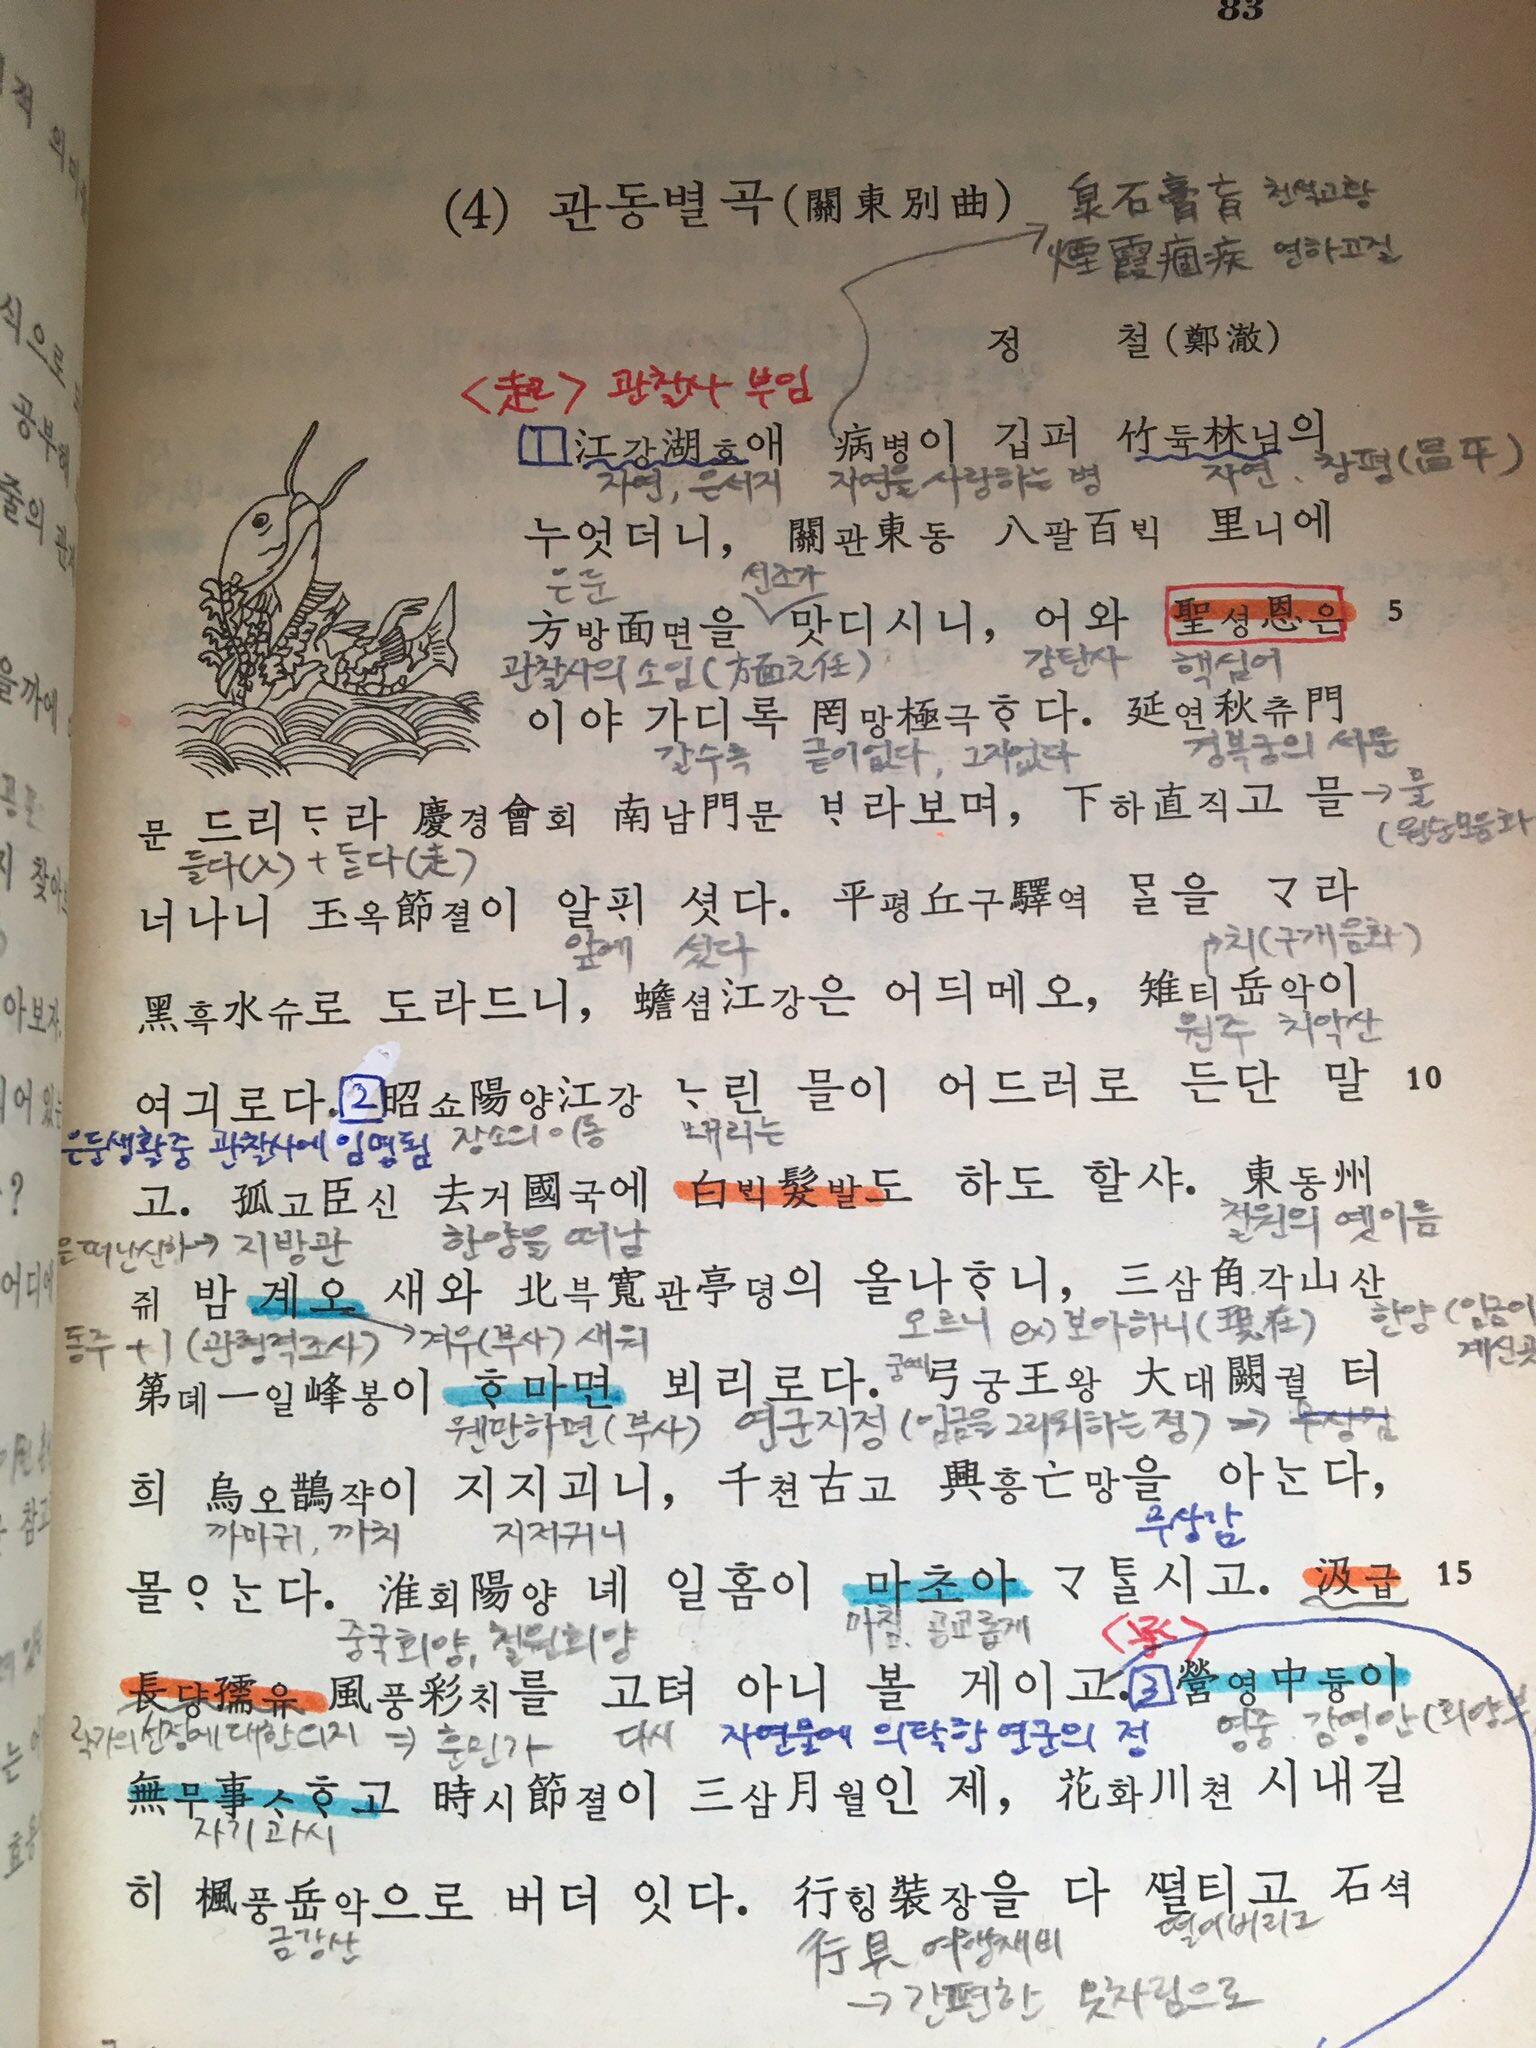 83
(4) 관동별곡(關東別曲)
泉石膏肓 천석고황
煙霞痼疾 연하고질
정 철(鄭澈)
<起> 관찰사 부임
1 江강湖호애 病병이 깁퍼 竹듁林님의
자연, 은서지 자연을 사랑하는 병 자연. 창평(昌平)
누엇더니, 關관東동 八팔百빅 里니에
은둔 선조가
方방面면을 맛디시니, 어와 聖셩恩은 5
관찰사의 소임(方面之任) 감탄사 핵심어
이야 가디록 罔망極극ᄒᆞ다. 延연秋츄門
갈수록 끝이없다, 그지없다 경복궁의 서문
문 드리ᄃᆞ라 慶경會회 南남門문 ᄇᆞ라보며, 下하直직고 믈→물
들다(入)+ᄃᆞᆮ다(走) (원순모음화
너나니 玉옥節졀이 알ᄑᆡ 셧다. 平평丘구驛역 ᄆᆞᆯ을 ᄀᆞ라
앞에 섰다 →치(구개음화)
黑흑水슈로 도라드니, 蟾셤江강은 어듸메오, 雉티岳악이
원주 치악산
여긔로다. 2 昭쇼陽양江강 ᄂᆞ린 믈이 어드러로 든단 말 10
은둔생활중 관찰사에 임명됨 장소의 이동 내리는
고. 孤고臣신 去거國국에 白빅髮발도 하도 할샤. 東동州
은 떠난신하→ 지방관 한양을 떠남 철원의 옛이름
쥐 밤 계오 새와 北북寬관亭뎡의 올나ᄒᆞ니, 三삼角각山산
동주+ㅣ(관형격조사) →겨우(부사) 새워 오르니 ex)보아하니(現在) 한양(임금이 계신곳
第뎨一일峰봉이 ᄒᆞ마면 뵈리로다. 궁예 弓궁王왕 大대闕궐 터
웬만하면(부사) 연군지정(임금을 그리워하는 정) ⇒ 무상감
희 烏오鵲쟉이 지지괴니, 千쳔古고 興흥亡망을 아ᄂᆞᆫ다,
까마귀, 까치 지저귀니 무상감
몰ᄋᆞᄂᆞᆫ다. 淮회陽양 녜 일홈이 마초아 ᄀᆞᄐᆞᆯ시고. 汲급 15
중국회양, 철원회양 마침. 공교롭게 <承>
長댱孺유 風풍彩ᄎᆡ를 고텨 아니 볼 게이고. 3 營영中듕이
작가의 선정에 대한 의지 ⇒ 훈민가 다시 자연물에 의탁한 연군의 정 영중. 감영안(회양부
無무事ᄉᆞᄒᆞ고 時시節졀이 三삼月월인 제, 花화川쳔 시내길
자기 과시
히 楓풍岳악으로 버더 잇다. 行ᄒᆡᆼ裝장을 다 ᄯᅥᆯ티고 石셕
금강산 行具 여행채비 떨어버리고
→간편한 옷차림으로